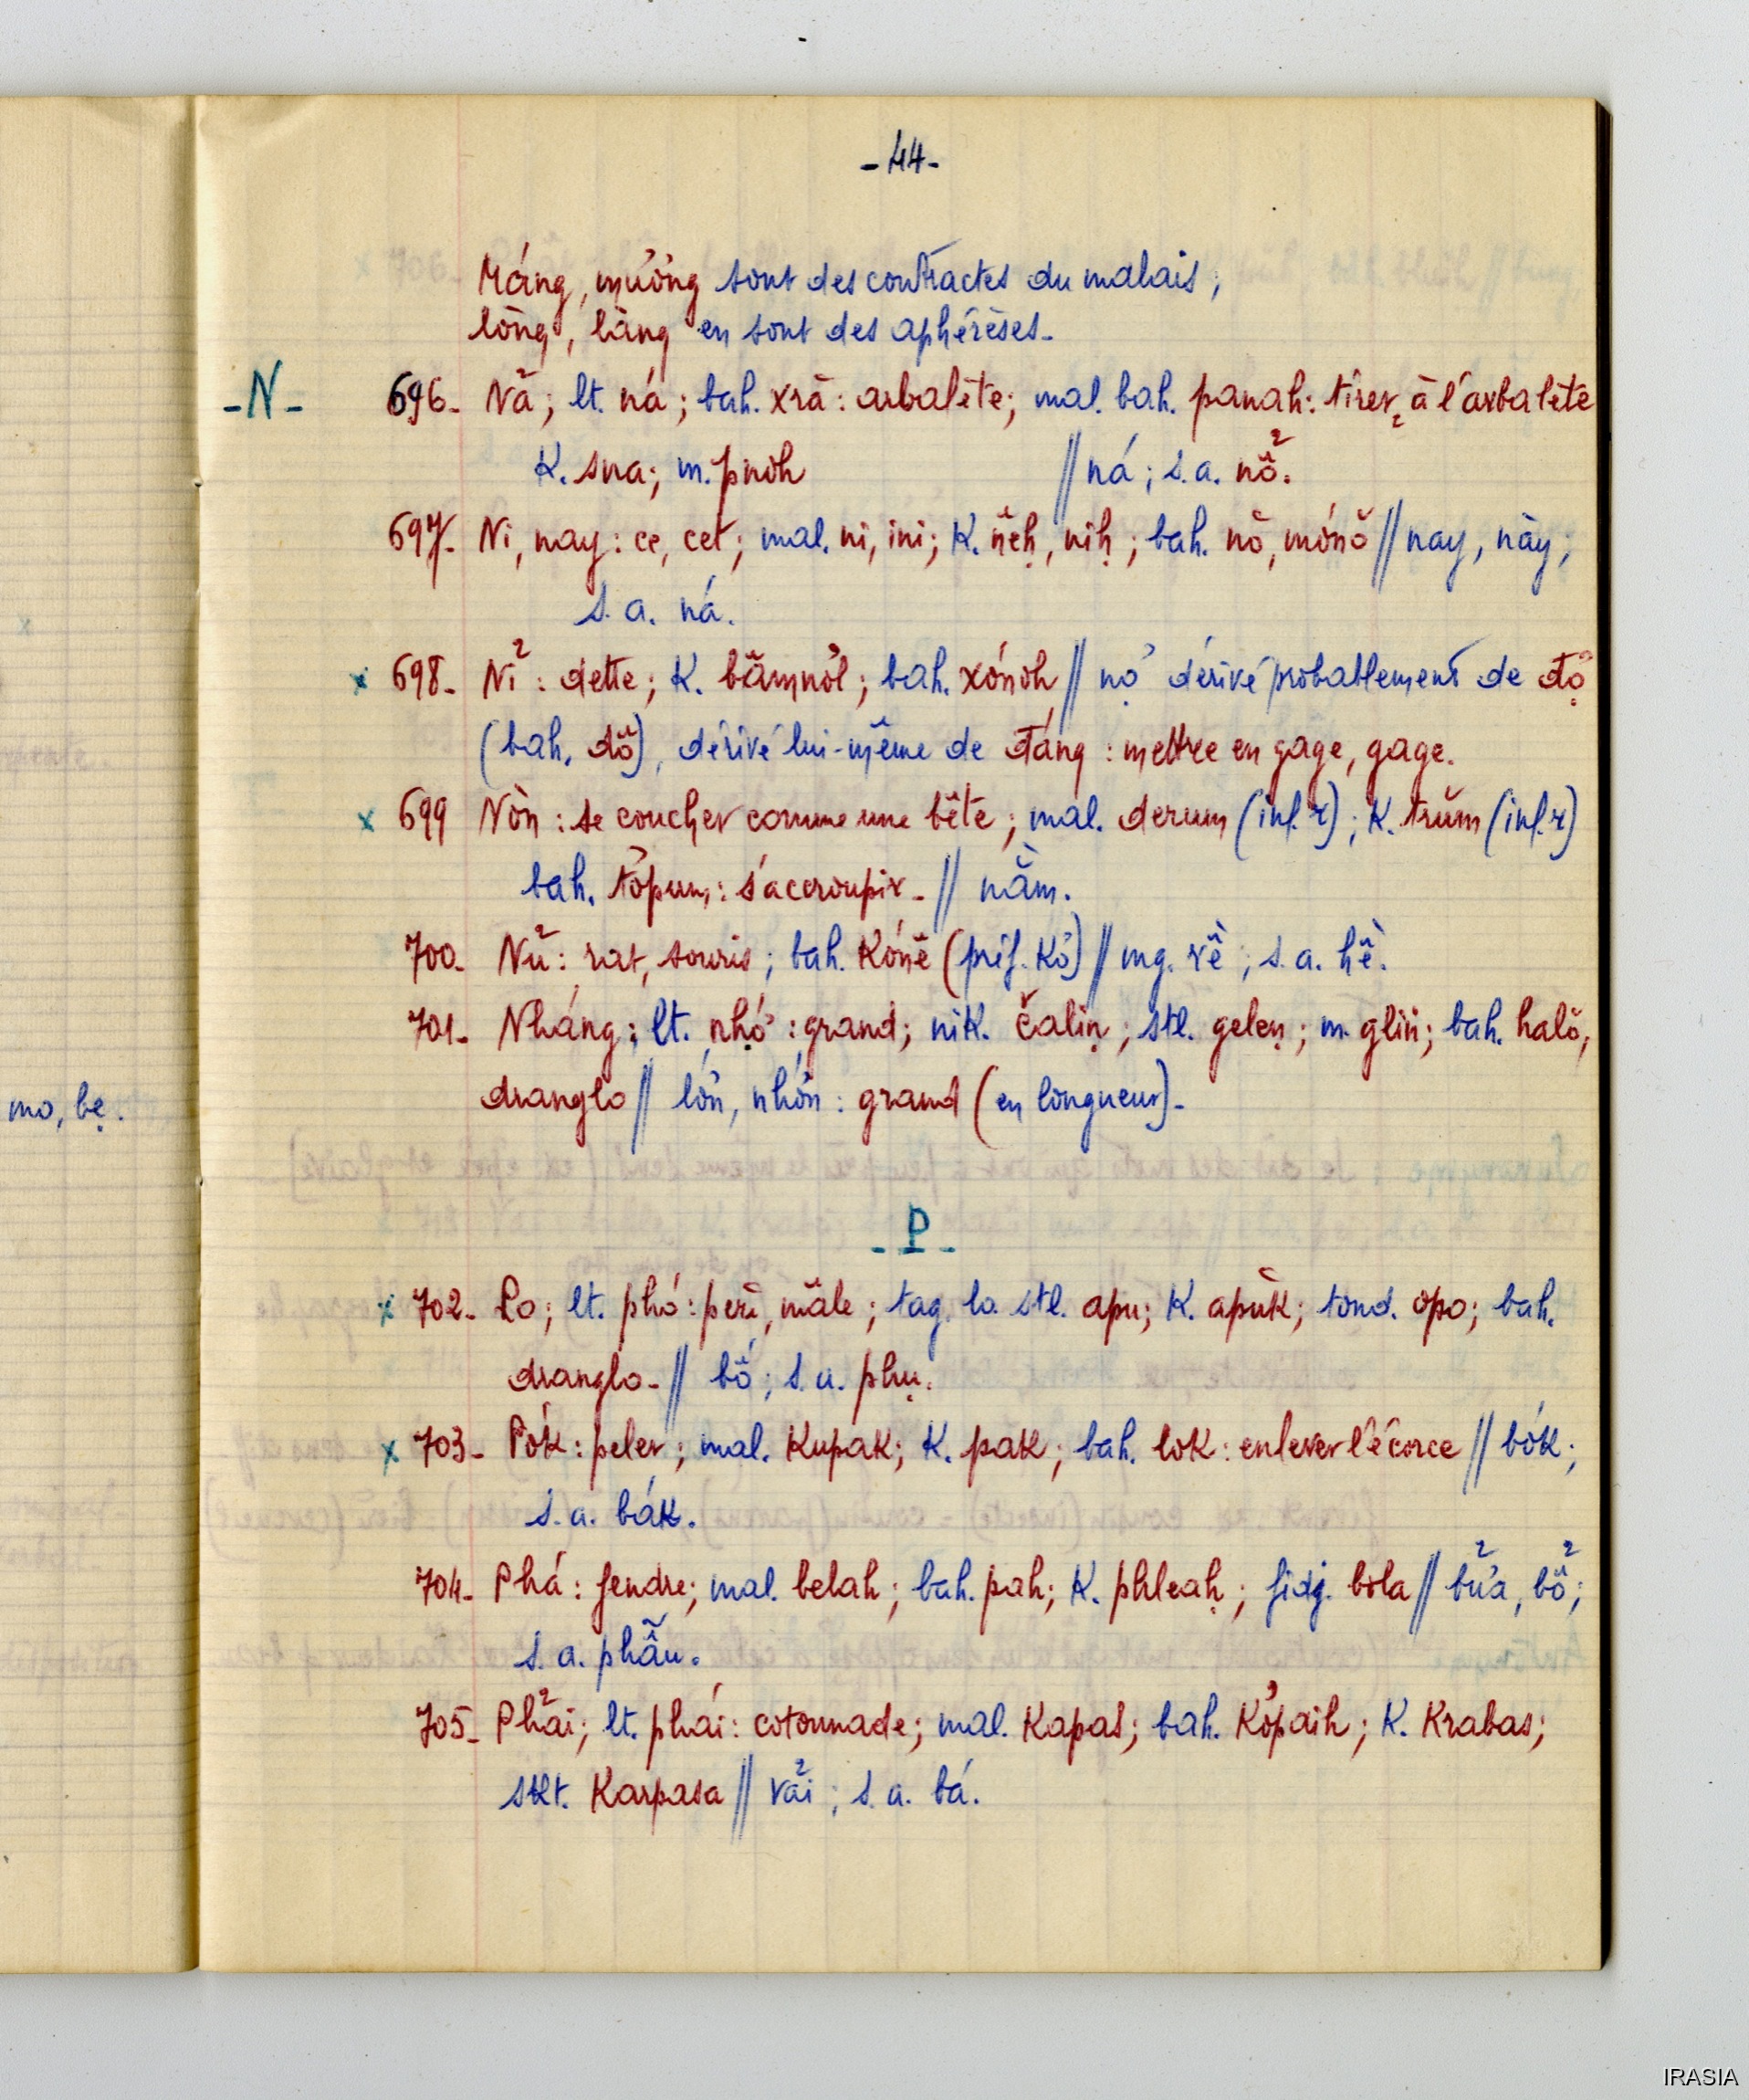 -44-
Máng, mường sont des contractes du malais;
lòng, làng en sont des aphérèses-
-N-
696- Nả; lt. ná; bah. xră: arbalète; mal. bah. panah: tirer à l'arbalète
K. sna; m. pnoh // ná; s.a. nổ.
697- Ni, nay: ce, cet; mal. ni, ini; K. nĕḥ, niḥ; bah. nŏ, mónŏ // nay, này;
s. a. ná.
x 698- Nỉ: dette; K. bămnól; bah. xónoh // nợ dérivé probablement de đợ
(bah. dŏ), dérivé lui-même de đáng: mettre en gage, gage.
x 699 Nòn: se coucher comme une bête; mal. derum (inf. r); K. trŭm (inf. r)
bah. tơpum: s'accroupir- // nằm.
700- Nủ: rat, souris; bah. Kónĕ (préf. Kơ) // mg. rê; s. a. hê.
701- Nháng; lt. nhớ: grand; nik. čaliṇ; stl. geleṇ; m. gliń; bah. halŏ,
dranglo // lớn, nhớn: grand (en longueur)-
-P-
x 702- Po; lt. phó: père, mâle; tag. lo. stl. apu; K. apŭk; tond. opo; bah.
dranglo- // bố; s. a. phụ.
x 703- Pók: peler; mal. Kupak; K. pak; bah. lok: enlever l'écorce // bók;
s. a. bák.
704- Phá: fendre; mal. belah; bah. pah; K. phleaḥ; fidj. bola // bửa, bổ;
s. a. phẫu.
705- Phải; lt. phái: cotonnade; mal. Kapas; bah. Kơpaih; K. Krabas;
skt. Karpasa // vải; s. a. bá.
mo, bẹ.
IRASIA